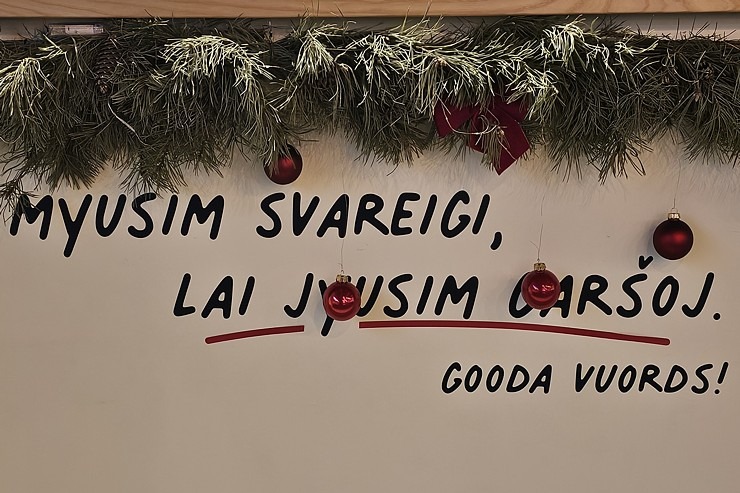 MYUSIM SVAREIGI,
LAI JYUSIM GARŠOJ.
GOODA VUORDS!